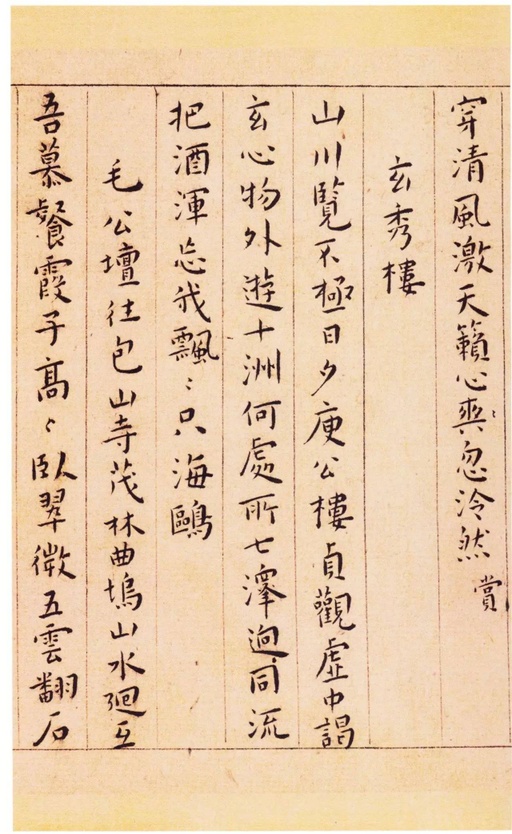 穿清風激天籟心爽忽泠然賞
玄秀樓
山川覽不極日夕庾公樓貞觀虛中謁
玄心物外遊十洲何處所七澤迥同流
把酒渾忘我飄〻只海鷗
毛公壇往包山寺茂林曲塢山水廻互
吾慕餐霞子高〻臥翠微五雲翻石